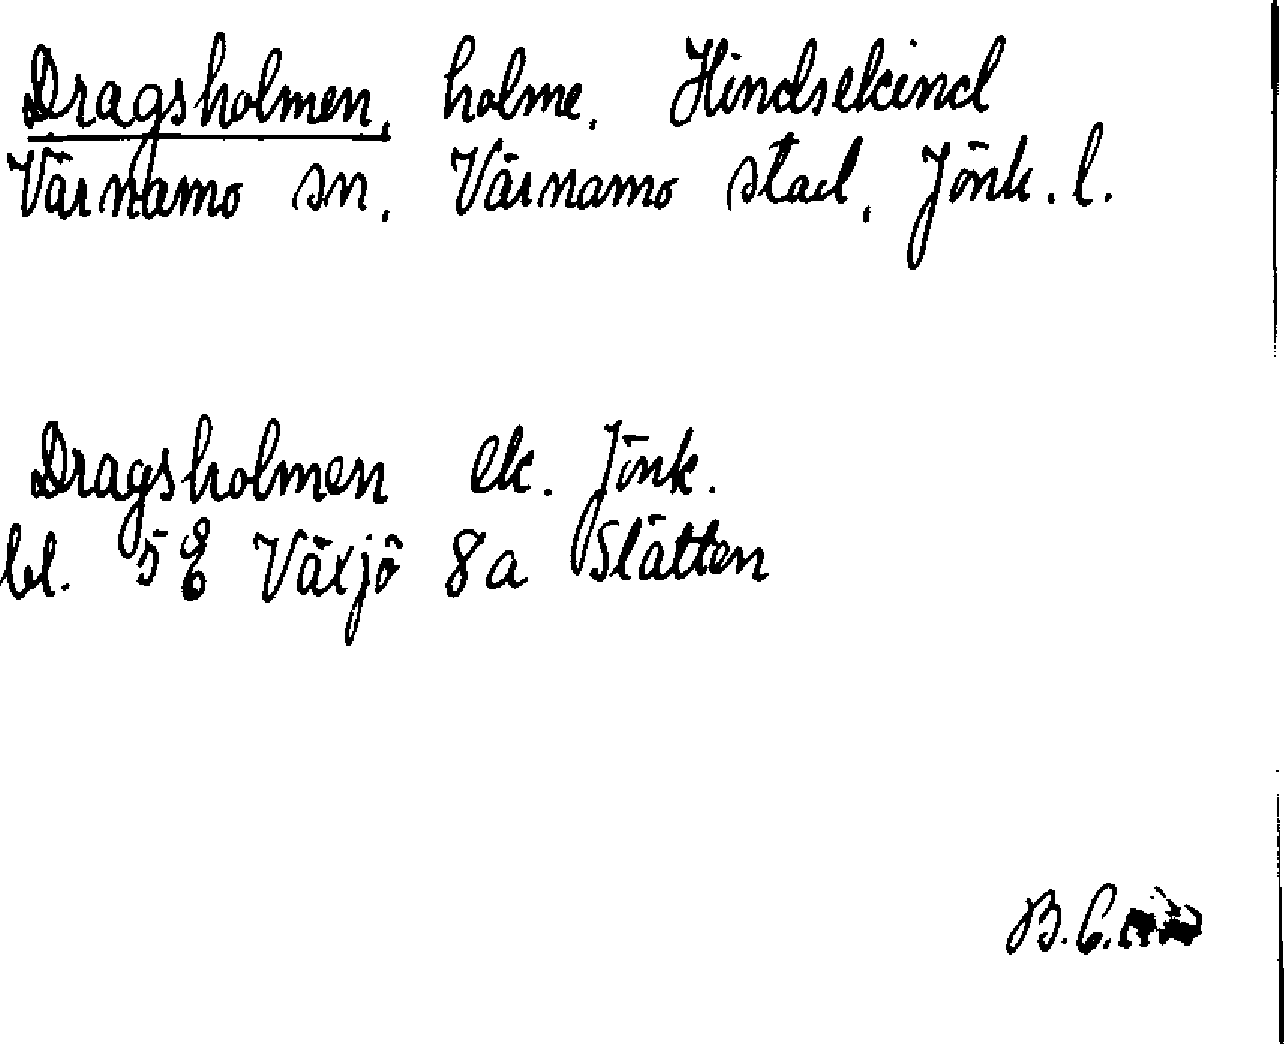 Dragsholmen, holme, Hindsekind
Värnamo sn, Värnamo stad, Jönk. l.
Dragsholmen ek. Jönk.
bl. 5 E Växjö 8a Slätten
B. C.